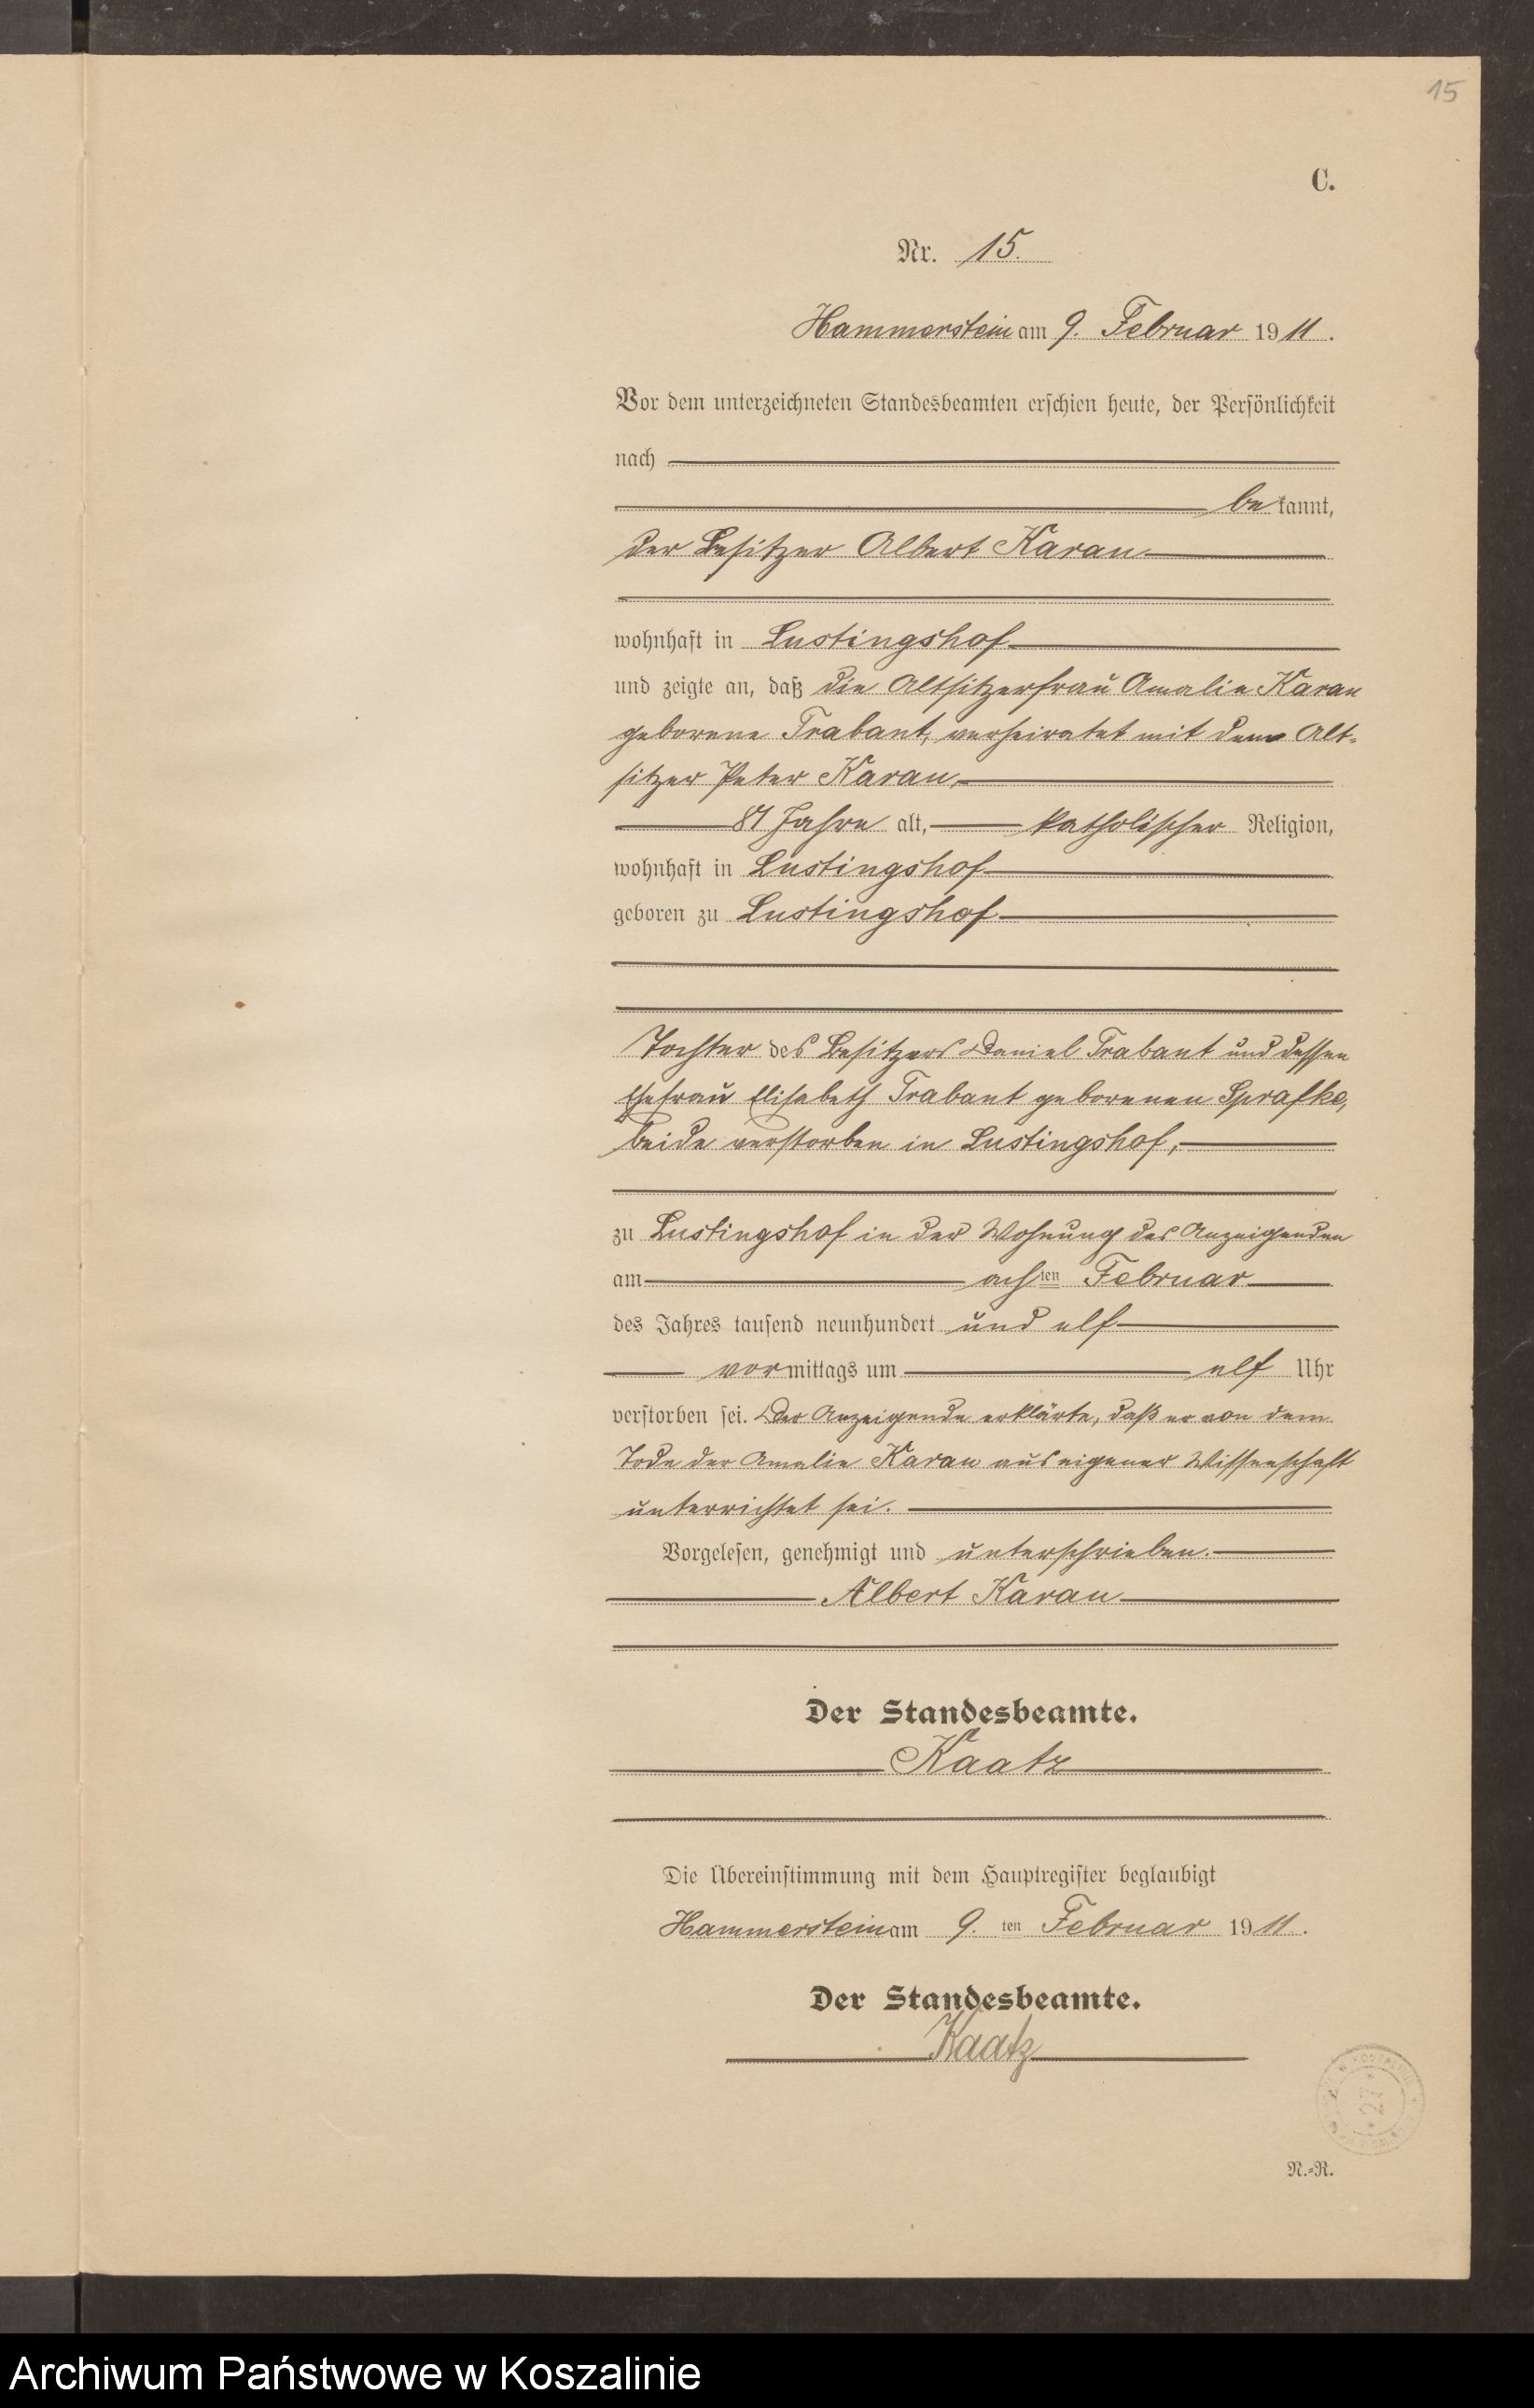 15
C.
Nr. 15.
Hammerstein am 9. Februar 1911.
Vor dem unterzeichneten Standesbeamten erschien heute, der Persönlichkeit
nach
bekannt,
der Besitzer Albert Karau
wohnhaft in Lustingshof
und zeigte an, daß die Altsitzerfrau Amalie Karau
geborene Trabant, verheiratet mit dem Alt-
sitzer Peter Karau,
81 Jahre alt, katholischer Religion,
wohnhaft in Lustingshof
geboren zu Lustingshof
Tochter des Besitzers Daniel Trabant und dessen
Ehefrau Elisabeth Trabant geborenen Sprafke,
beide verstorben in Lustingshof,
zu Lustingshof in der Wohnung des Anzeigenden
am achten Februar
des Jahres tausend neunhundert und elf
vormittags um elf Uhr
verstorben sei. Der Anzeigende erklärte, daß er von dem
Tode der Amalie Karau aus eigener Wissenschaft
unterrichtet sei.
Vorgelesen, genehmigt und unterschrieben.
Albert Karau
Der Standesbeamte.
Kaatz
Die Übereinstimmung mit dem Hauptregister beglaubigt
Hammerstein am 9. ten Februar 1911.
Der Standesbeamte.
Kaatz
N.-R.
Archiwum Państwowe w Koszalinie